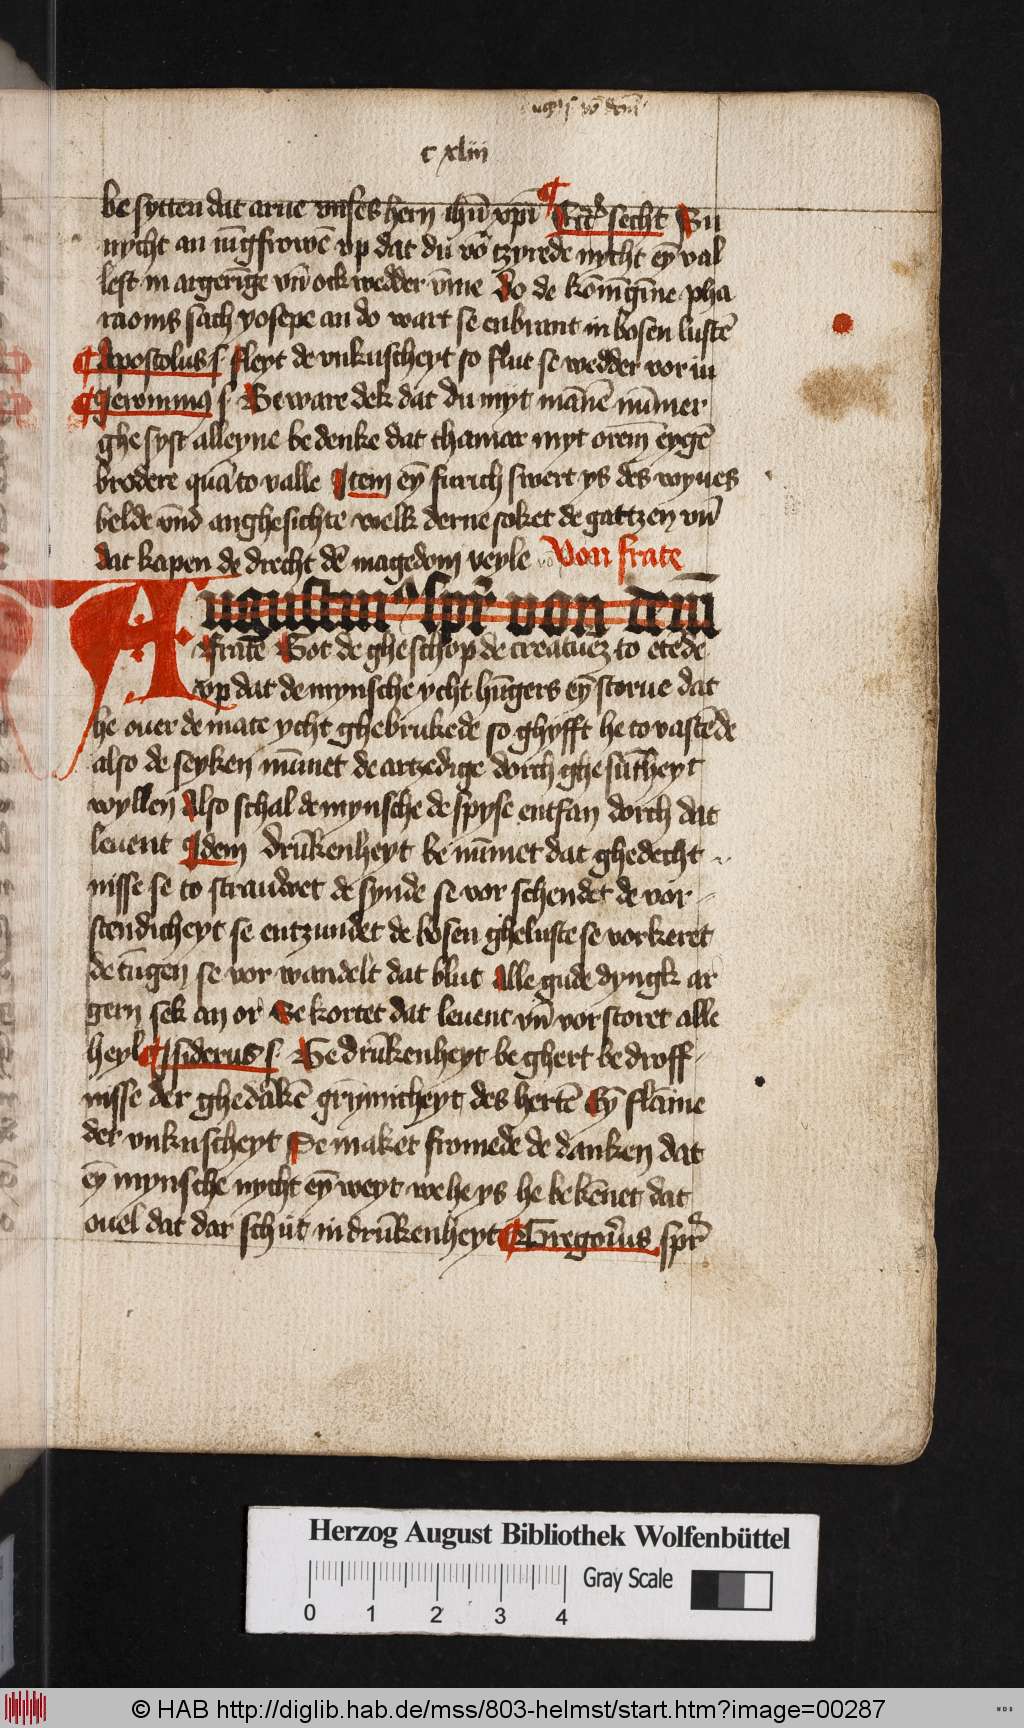 c xliii
be sytten dat arue vnses hern ihū xpī ¶ Ecc̄ secht Su
nycht an iūgfrwē vp dat du vō tzyrede nycht eȳ val
lest in argerīge vn̄ ock wedder v̄me Do de kōnigīne pha
raonis sach yosepe an do wart se enbrant in bosen lustē
¶ Apostolus s. fleyt de vnkuscheyt so flut se wedder vor iu
¶ Jeronimꝰ s Beware dek dat du myt mānē nūmer
ghe syst alleyne be denke dat thamar myt orem̄ eygē
brodere quā to valle Item eȳ furich swert ys des wyues
belde vn̄d anghesichte welk derne soket de gattzen vn̄
dat kapen de drecht dē magedom veyle Von frate
Augustinꝰ spr̄ von dem̄
frate Got de gheschop de creatuez to etēde
vp dat de mynsche ycht hūgers eȳ storue dat
he ouer de mate ycht ghebrukede so ghyfft he to vastēde
also de seyken nīmet de artzedige dorch ghesūtheyt
wyllen Also schal de mynsche de spyse entfan dorch dat
leuent Idem drūkenheyt be nīmet dat ghedecht
nisse se to strauwet de synde se vor schendet de vor
stendicheyt se entzundet de bosen gheluste se vorkeret
de tūgen se vor wandelt dat blut Alle gude dyngk ar
gern sek an or Se kortet dat leuent vn̄ vorstoret alle
heyl ¶ Isiderus s. De drūkenheyt be ghert be droff
nisse der ghedākē grȳmicheyt des hertē Eȳ flāme
der vnkuscheyt Se maket fromede de danken dat
eȳ mynsche nycht eȳ weyt we he ys he bekēnet dat
ouel dat dar schut in drūkenheyt ¶ Gregorius spr̄
Herzog August Bibliothek Wolfenbüttel
Gray Scale
0 1 2 3 4
© HAB http://diglib.hab.de/mss/803-helmst/start.htm?image=00287